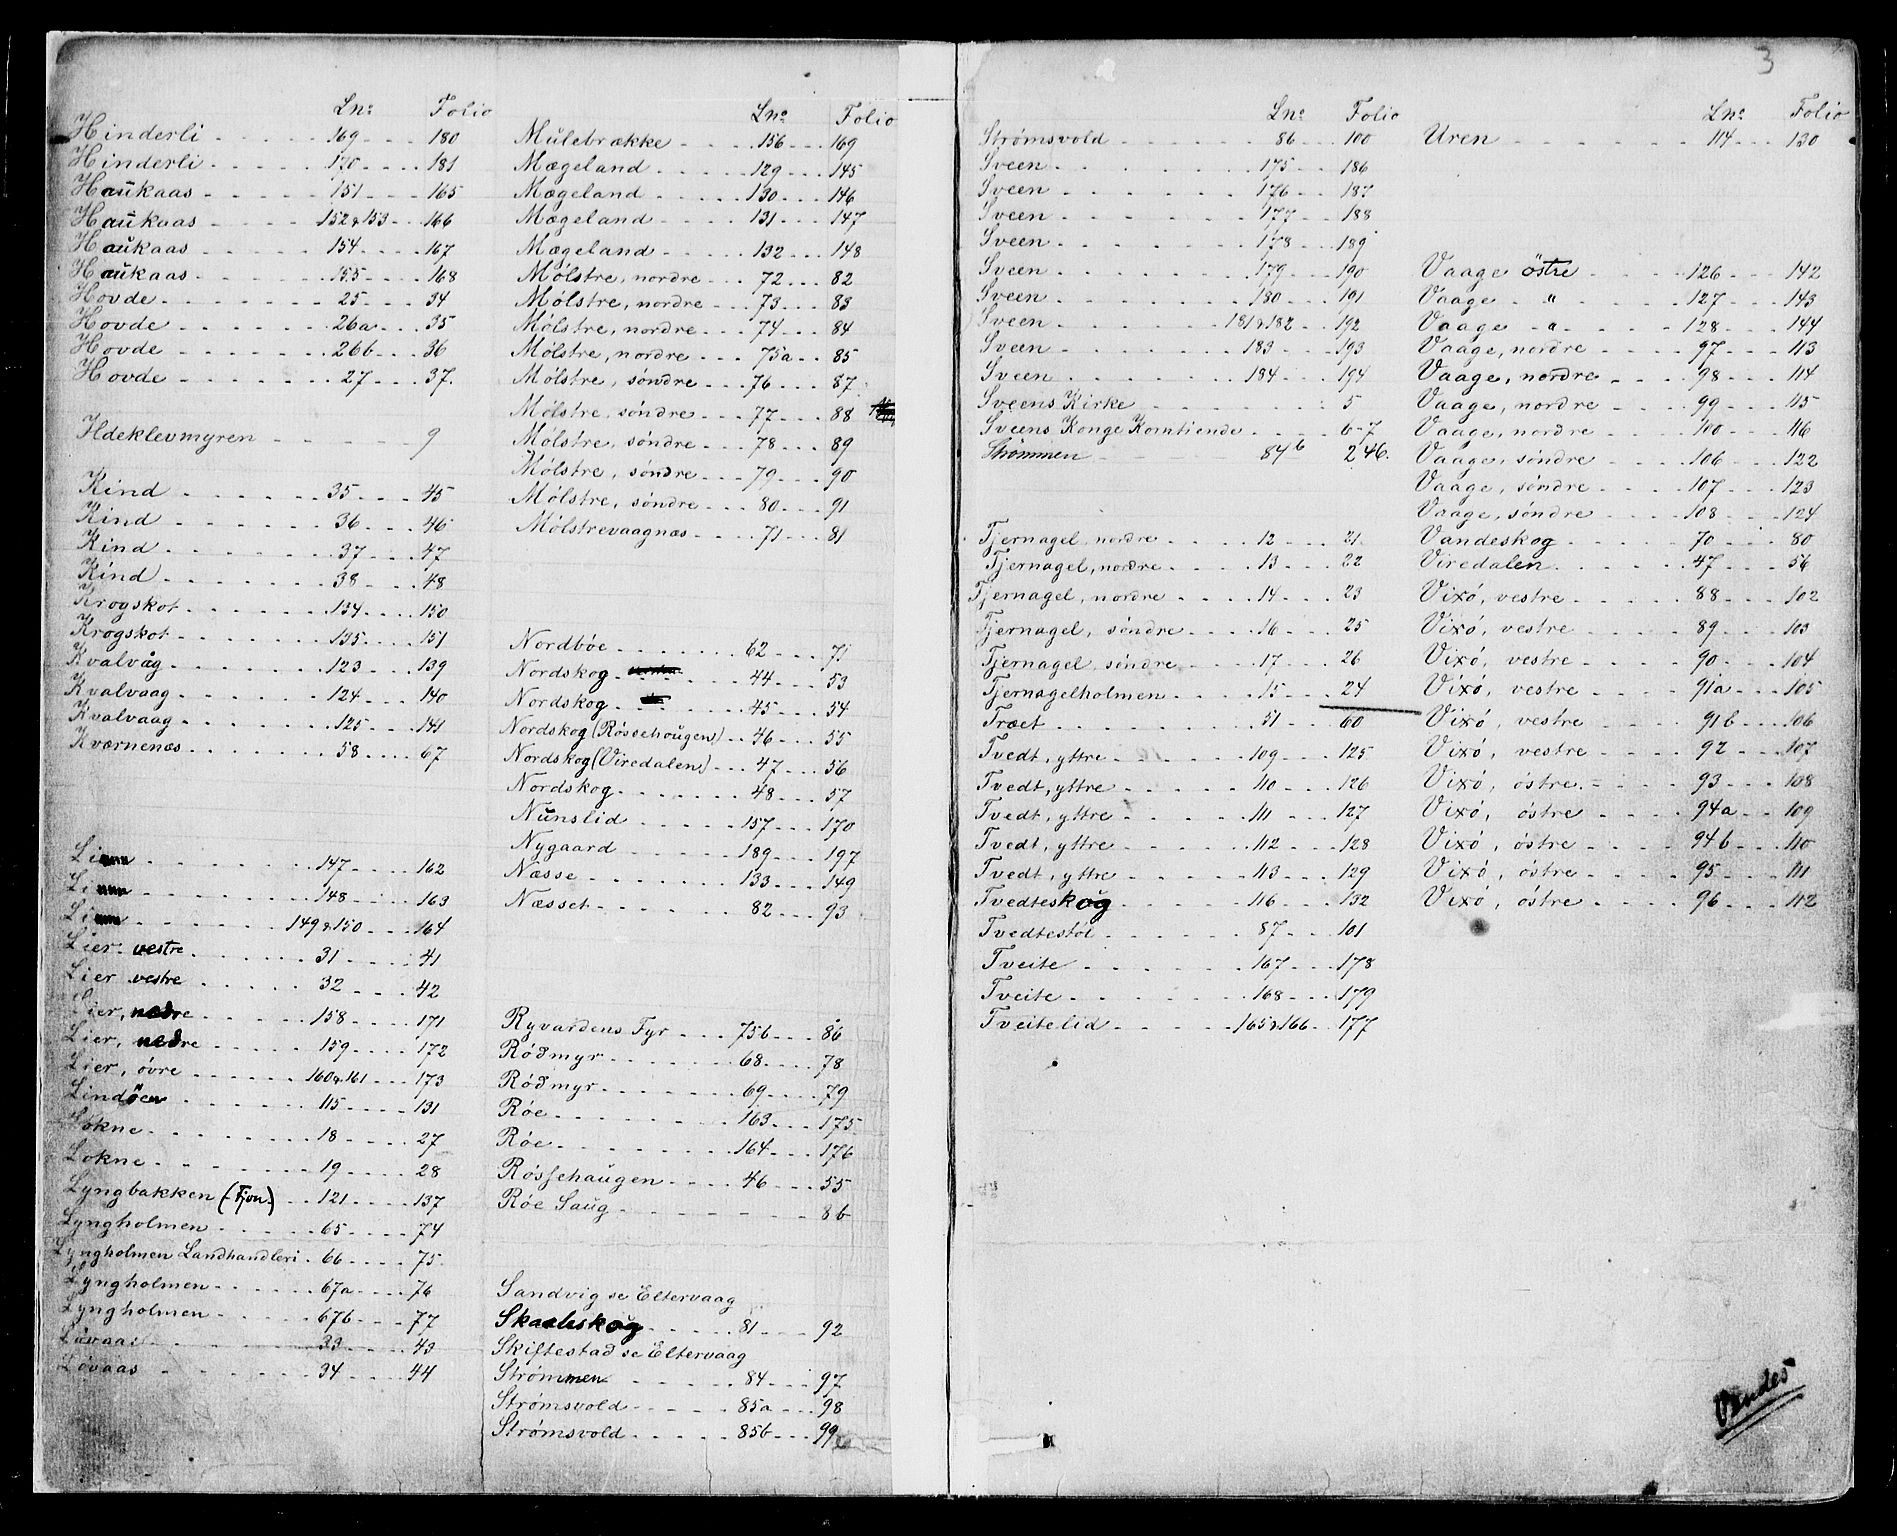 3
Lno Folio
Hinderli 169 180
Hinderli 170 181
Haukaas 151 165
Haukaas 152 & 153 166
Haukaas 154 167
Haukaas 155 168
Hovde 25 34
Hovde 26a 35
Hovde 26b 36
Hovde 27 37.
Ildeklevmyren 9
Kind 35 45
Kind 36 46
Kind 37 47
Kind 38 48
Krogskot 134 150
Krogskot 135 151
Kvalvåg 123 139
Kvalvaag 124 140
Kvalvaag 125 141
Kværnenæs 58 67
Li 147 162
Li 148 163
Li 149 & 150 164
Lier vestre 31 41
Lier vestre 32 42
Lier, nedre 158 171
Lier, nedre 159 172
Lier, övre 160 & 161 173
Lindöen 115 131
Lokne 18 27
Lokne 19 28
Lyngbakken (Fjon) 121 137
Lyngholmen 65 74
Lyngholmen Landhandleri 66 75
Lyngholmen 67a 76
Lyngholmen 67b 77
Lövaas 33 43
Lövaas 34 44
Lno Folio
Mulebrække 156 169
Mægeland 129 145
Mægeland 130 146
Mægeland 131 147
Mægeland 132 148
Mölstre, nordre 72 82
Mölstre, nordre 73 83
Mölstre, nordre 74 84
Mölstre, nordre 75a 85
Mölstre, söndre 76 87
Mölstre, söndre 77 88
Mölstre, söndre 78 89
Mölstre, söndre 79 90
Mölstre, söndre 80 91
Mölstrevaagnæs 71 81
Nordböe 62 71
Nordskog 44 53
Nordskog 45 54
Nordskog (Rössehougen) 46 55
Nordskog (Viredalen) 47 56
Nordskog 48 57
Nunslid 157 170
Nygaard 189 197
Næsse 133 149
Næsset 82 93
Ryvardens Fyr 75b 86
Rödmyr 68 78
Rödmyr 69 79
Röe 163 175
Röe 164 176
Rössehaugen 46 55
Röe Saug 8b
Sandvig se Eltervaag
Skaaleskog 81 92
Skiftestad se Eltervaag
Strømmen 84 97
Strømsvold 85a 98
Strømsvold 85b 99
Lno Folio
Strømsvold 86 100
Sveen 175 186
Sveen 176 187
Sveen 177 188
Sveen 178 189
Sveen 179 190
Sveen 180 191
Sveen 181 & 182 192
Sveen 183 193
Sveen 184 194
Sveens Kirke 5
Sveens Konge Korntiende 6-7
Strømmen 84b 246.
Tjernagel, nordre 12 21
Tjernagel, nordre 13 22
Tjernagel, nordre 14 23
Tjernagel, söndre 16 25
Tjernagel, söndre 17 26
Tjernagelholmen 15 24
Træet 51 60
Tvedt, yttre 109 125
Tvedt, yttre 110 126
Tvedt, yttre 111 127
Tvedt, yttre 112 128
Tvedt, yttre 113 129
Tvedteskog 116 132
Tvedtestöl 87 101
Tveite 167 178
Tveite 168 179
Tveitelid 165 & 166 177
Lno Folio
Uren 114 130
Vaage östre 126 142
Vaage " 127 143
Vaage " 128 144
Vaage, nordre 97 113
Vaage, nordre 98 114
Vaage, nordre 99 115
Vaage, nordre 100 116
Vaage, söndre 106 122
Vaage, söndre 107 123
Vaage, söndre 108 124
Vandeskog 70 80
Viredalen 47 56
Vixö, vestre 88 102
Vixö, vestre 89 103
Vixö, vestre 90 104
Vixö, vestre 91a 105
Vixö, vestre 91b 106
Vixö, vestre 92 107
Vixö, östre 93 108
Vixö, östre 94a 109
Vixö, östre 94b 110
Vixö, östre 95 111
Vixö, östre 96 112
Vendes